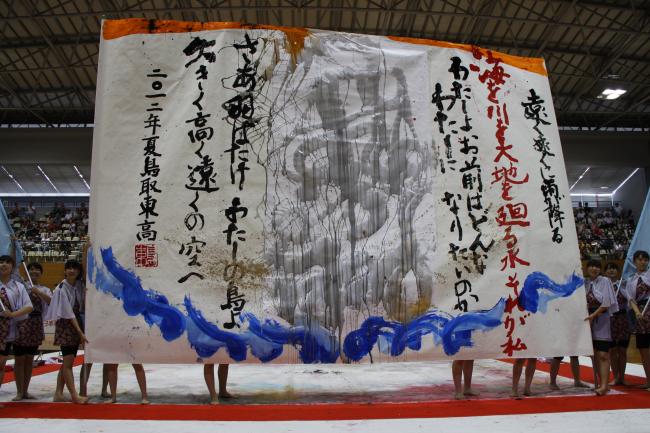 遠く寂しく雨降る
海を川を大地を廻る水それが私
わたしよお前はどんな
わたしになりたいのか
さあ羽ばたけわたしの鳥よ
大きく高く遠くの空へ
二〇一二年夏鳥取東高